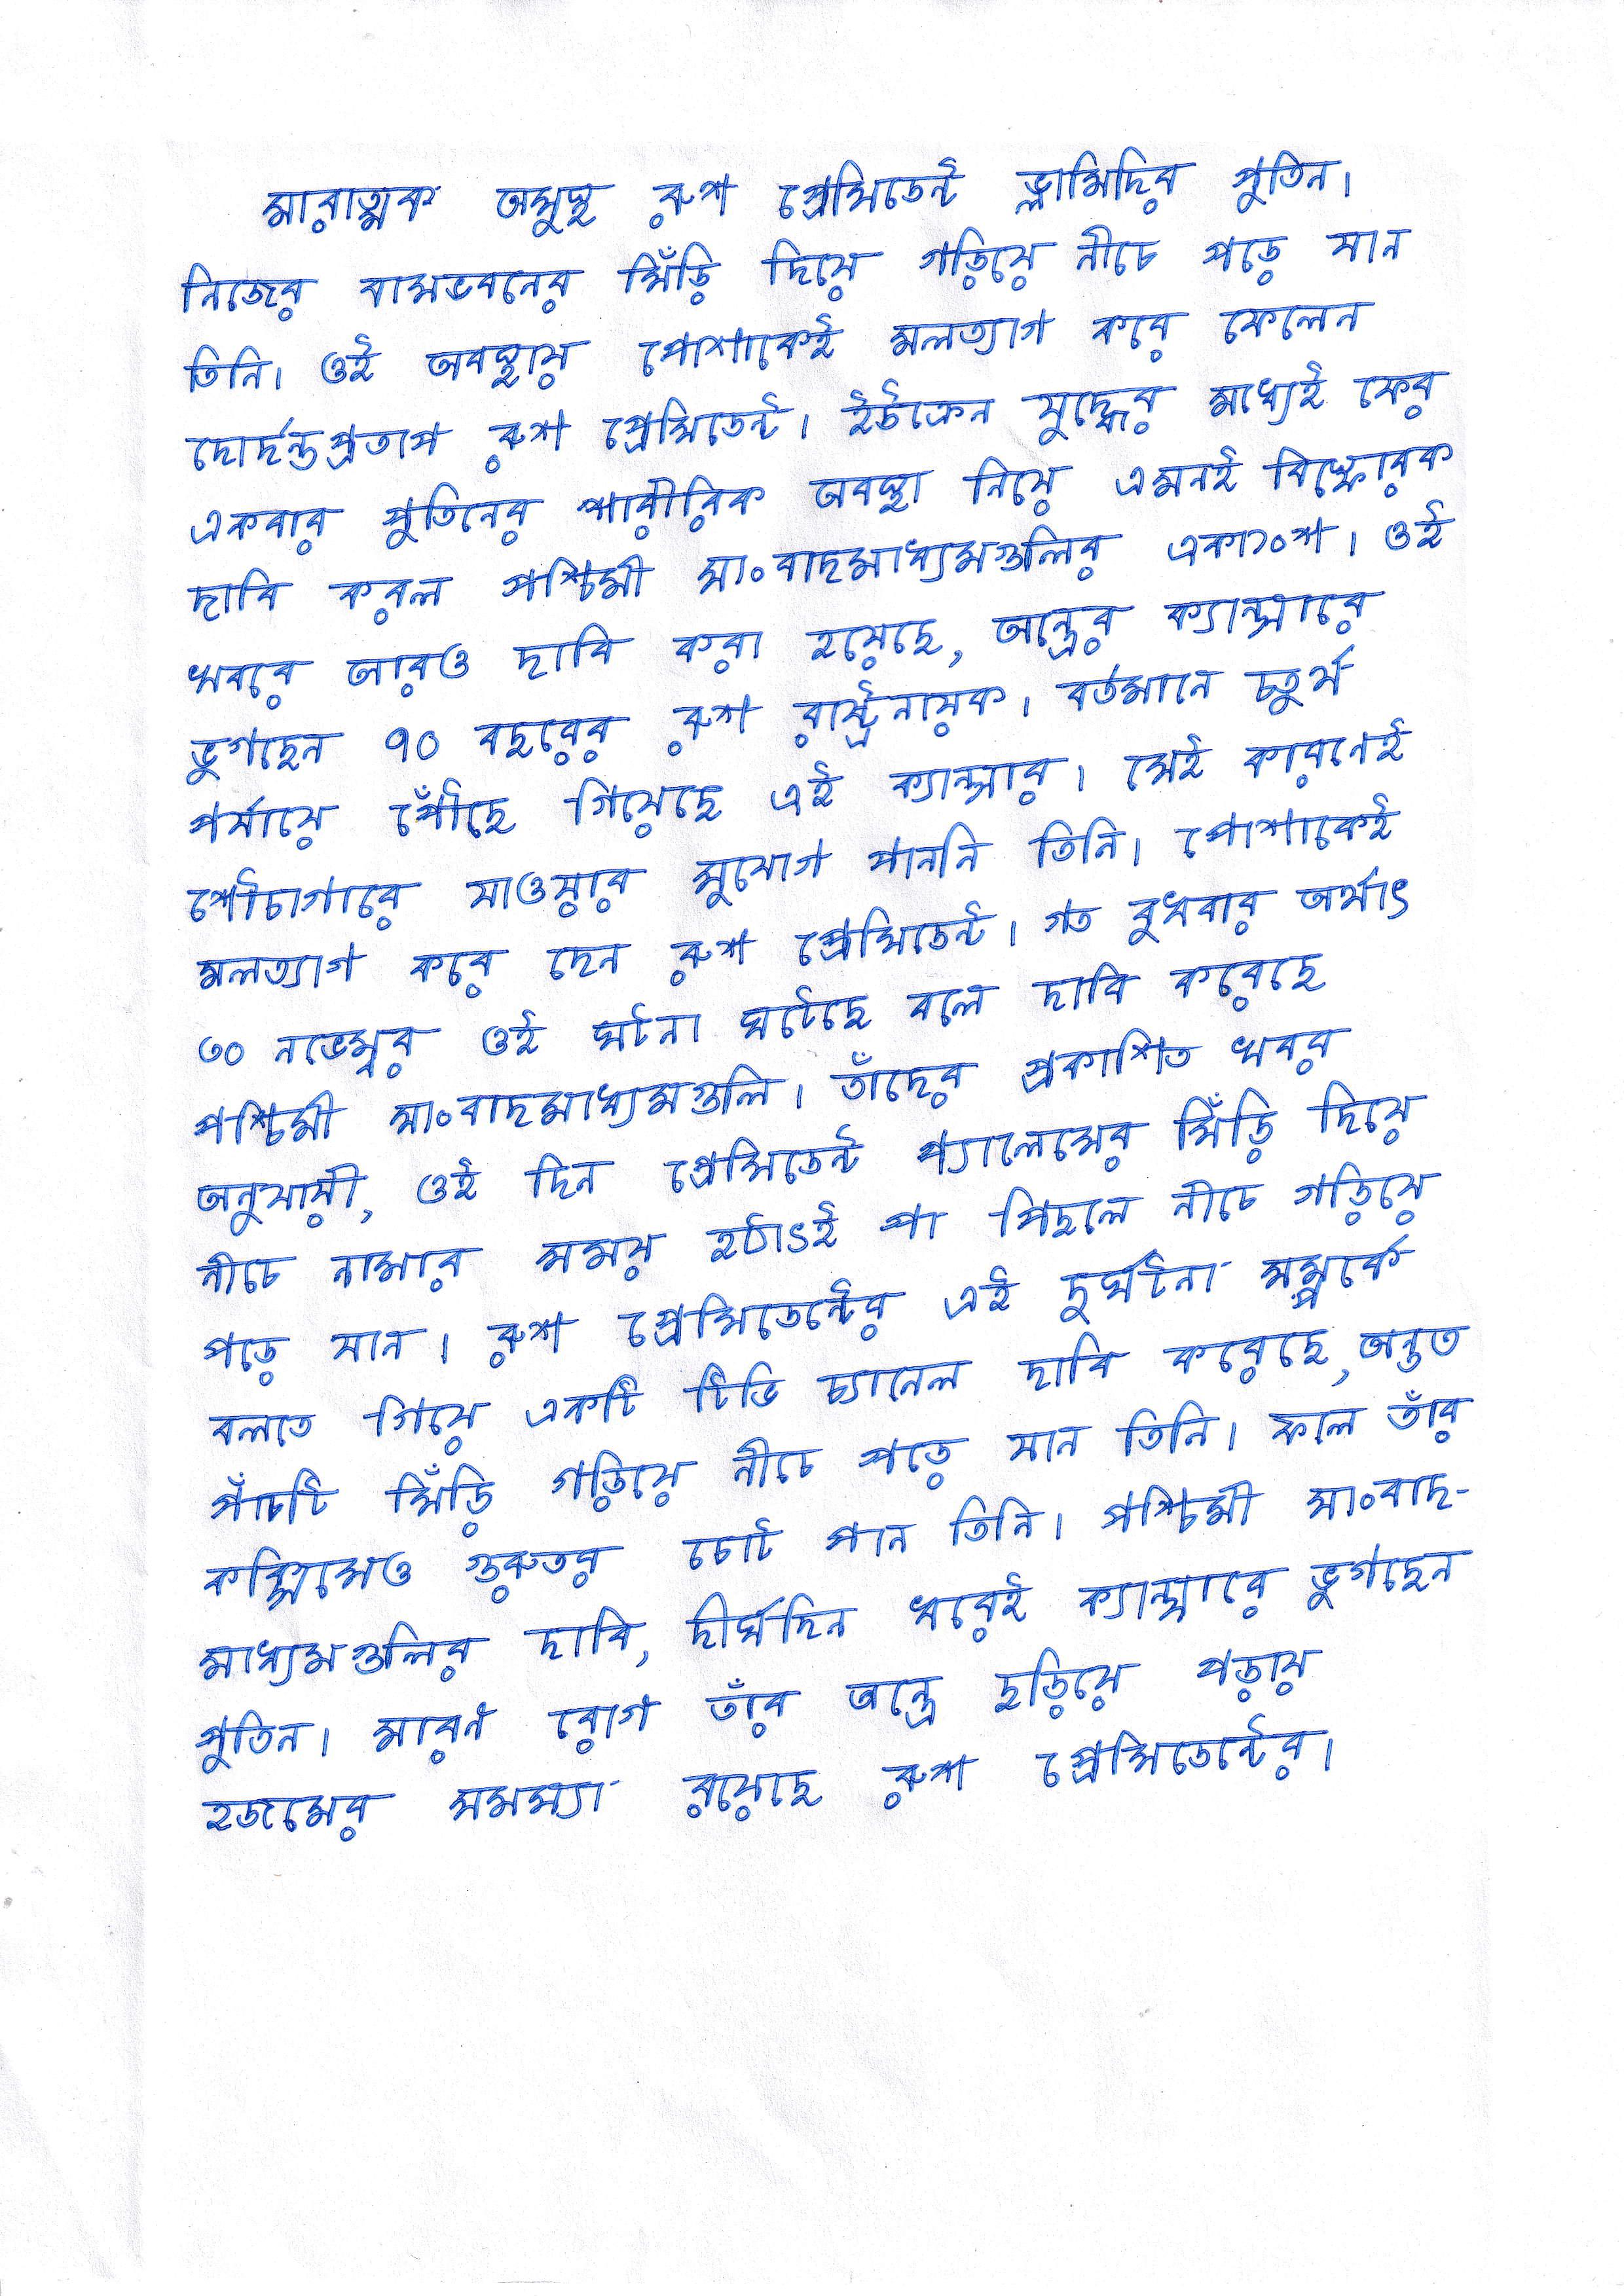 মারাত্মক অসুস্থ রুশ প্রেসিডেন্ট ভ্লাদিমির পুতিন।
নিজের বাসভবনের সিঁড়ি দিয়ে গড়িয়ে নীচে পড়ে যান
তিনি। ওই অবস্থায় পোশাকেই মলত্যাগ করে ফেলেন
দোর্দন্তপ্রতাপ রুশ প্রেসিডেন্ট। ইউক্রেন যুদ্ধের মধ্যেই ফের
একবার পুতিনের শারীরিক অবস্থা নিয়ে এমনই বিস্ফোরক
দাবি করল পশ্চিমী সাংবাদমাধ্যমগুলির একাংশ। ওই
খবরে আরও দাবি করা হয়েছে, অন্ত্রের ক্যান্সারে
ভুগছেন ৭০ বছরের রুশ রাষ্ট্রনায়ক। বর্তমানে চতুর্থ
পর্যায়ে পৌঁছে গিয়েছে এই ক্যান্সার। সেই কারণেই
শৌচাগারে যাওয়ার সুযোগ পাননি তিনি। পোশাকেই
মলত্যাগ করে দেন রুশ প্রেসিডেন্ট। গত বুধবার অর্থাৎ
৩০ নভেম্বর ওই ঘটনা ঘটেছে বলে দাবি করেছে
পশ্চিমী সাংবাদমাধ্যমগুলি। তাঁদের প্রকাশিত খবর
অনুযায়ী, ওই দিন প্রেসিডেন্ট প্যালেসের সিঁড়ি দিয়ে
নীচে নামার সময় হঠাৎই পা পিছলে নীচে গড়িয়ে
পড়ে যান। রুশ প্রেসিডেন্টের এই দুর্ঘটনা সম্পর্কে
বলতে গিয়ে একটি টিভি চ্যানেল দাবি করেছে, অন্তত
পাঁচটি সিঁড়ি গড়িয়ে নীচে পড়ে যান তিনি। ফলে তাঁর
কক্সিসেও গুরুতর চোট পান তিনি। পশ্চিমী সাংবাদ-
মাধ্যমগুলির দাবি, দীর্ঘদিন ধরেই ক্যান্সারে ভুগছেন
পুতিন। মারণ রোগ তাঁর অন্ত্রে ছড়িয়ে পড়ায়
হজমের সমস্যা রয়েছে রুশ প্রেসিডেন্টের।